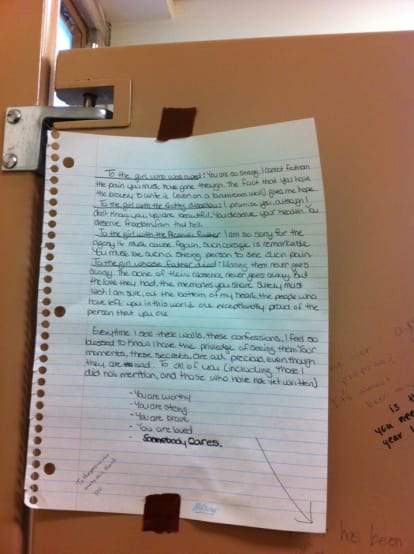 To the girl who was raped: You are so strong. I cannot fathom
the pain you must have gone through. The fact that you have
the bravery to write it (even on a bathroom wall) gives me hope.
To the girl with the eating disorder: I promise you, although I
don't know you, you are beautiful. You deserve your health. You
deserve freedom from that hell.
To the girl with the father: I am so sorry for the
agony it must cause. Again, such courage is remarkable.
You must be such a strong person to see such pain.
To the girl whose father died: Having them never goes
away. The ache of their absence never goes away, but
the love they had, the memories you share surely must
last. I am sure, at the bottom of my heart, the people who
have left you in this world are exceptionally proud of the
person that you are.
Everytime I see these walls, these confessions, I feel so
blessed to know I have the privilege of seeing them. Your
moments, these secrets, are all precious, even though
they are sad. To all of you (including those I
did not mention, and those who have not yet written)
- You are worthy
- You are strong
- You are brave
- You are loved
- Somebody Cares.
To the person who
Hilroy
is th
you nee
year
has been